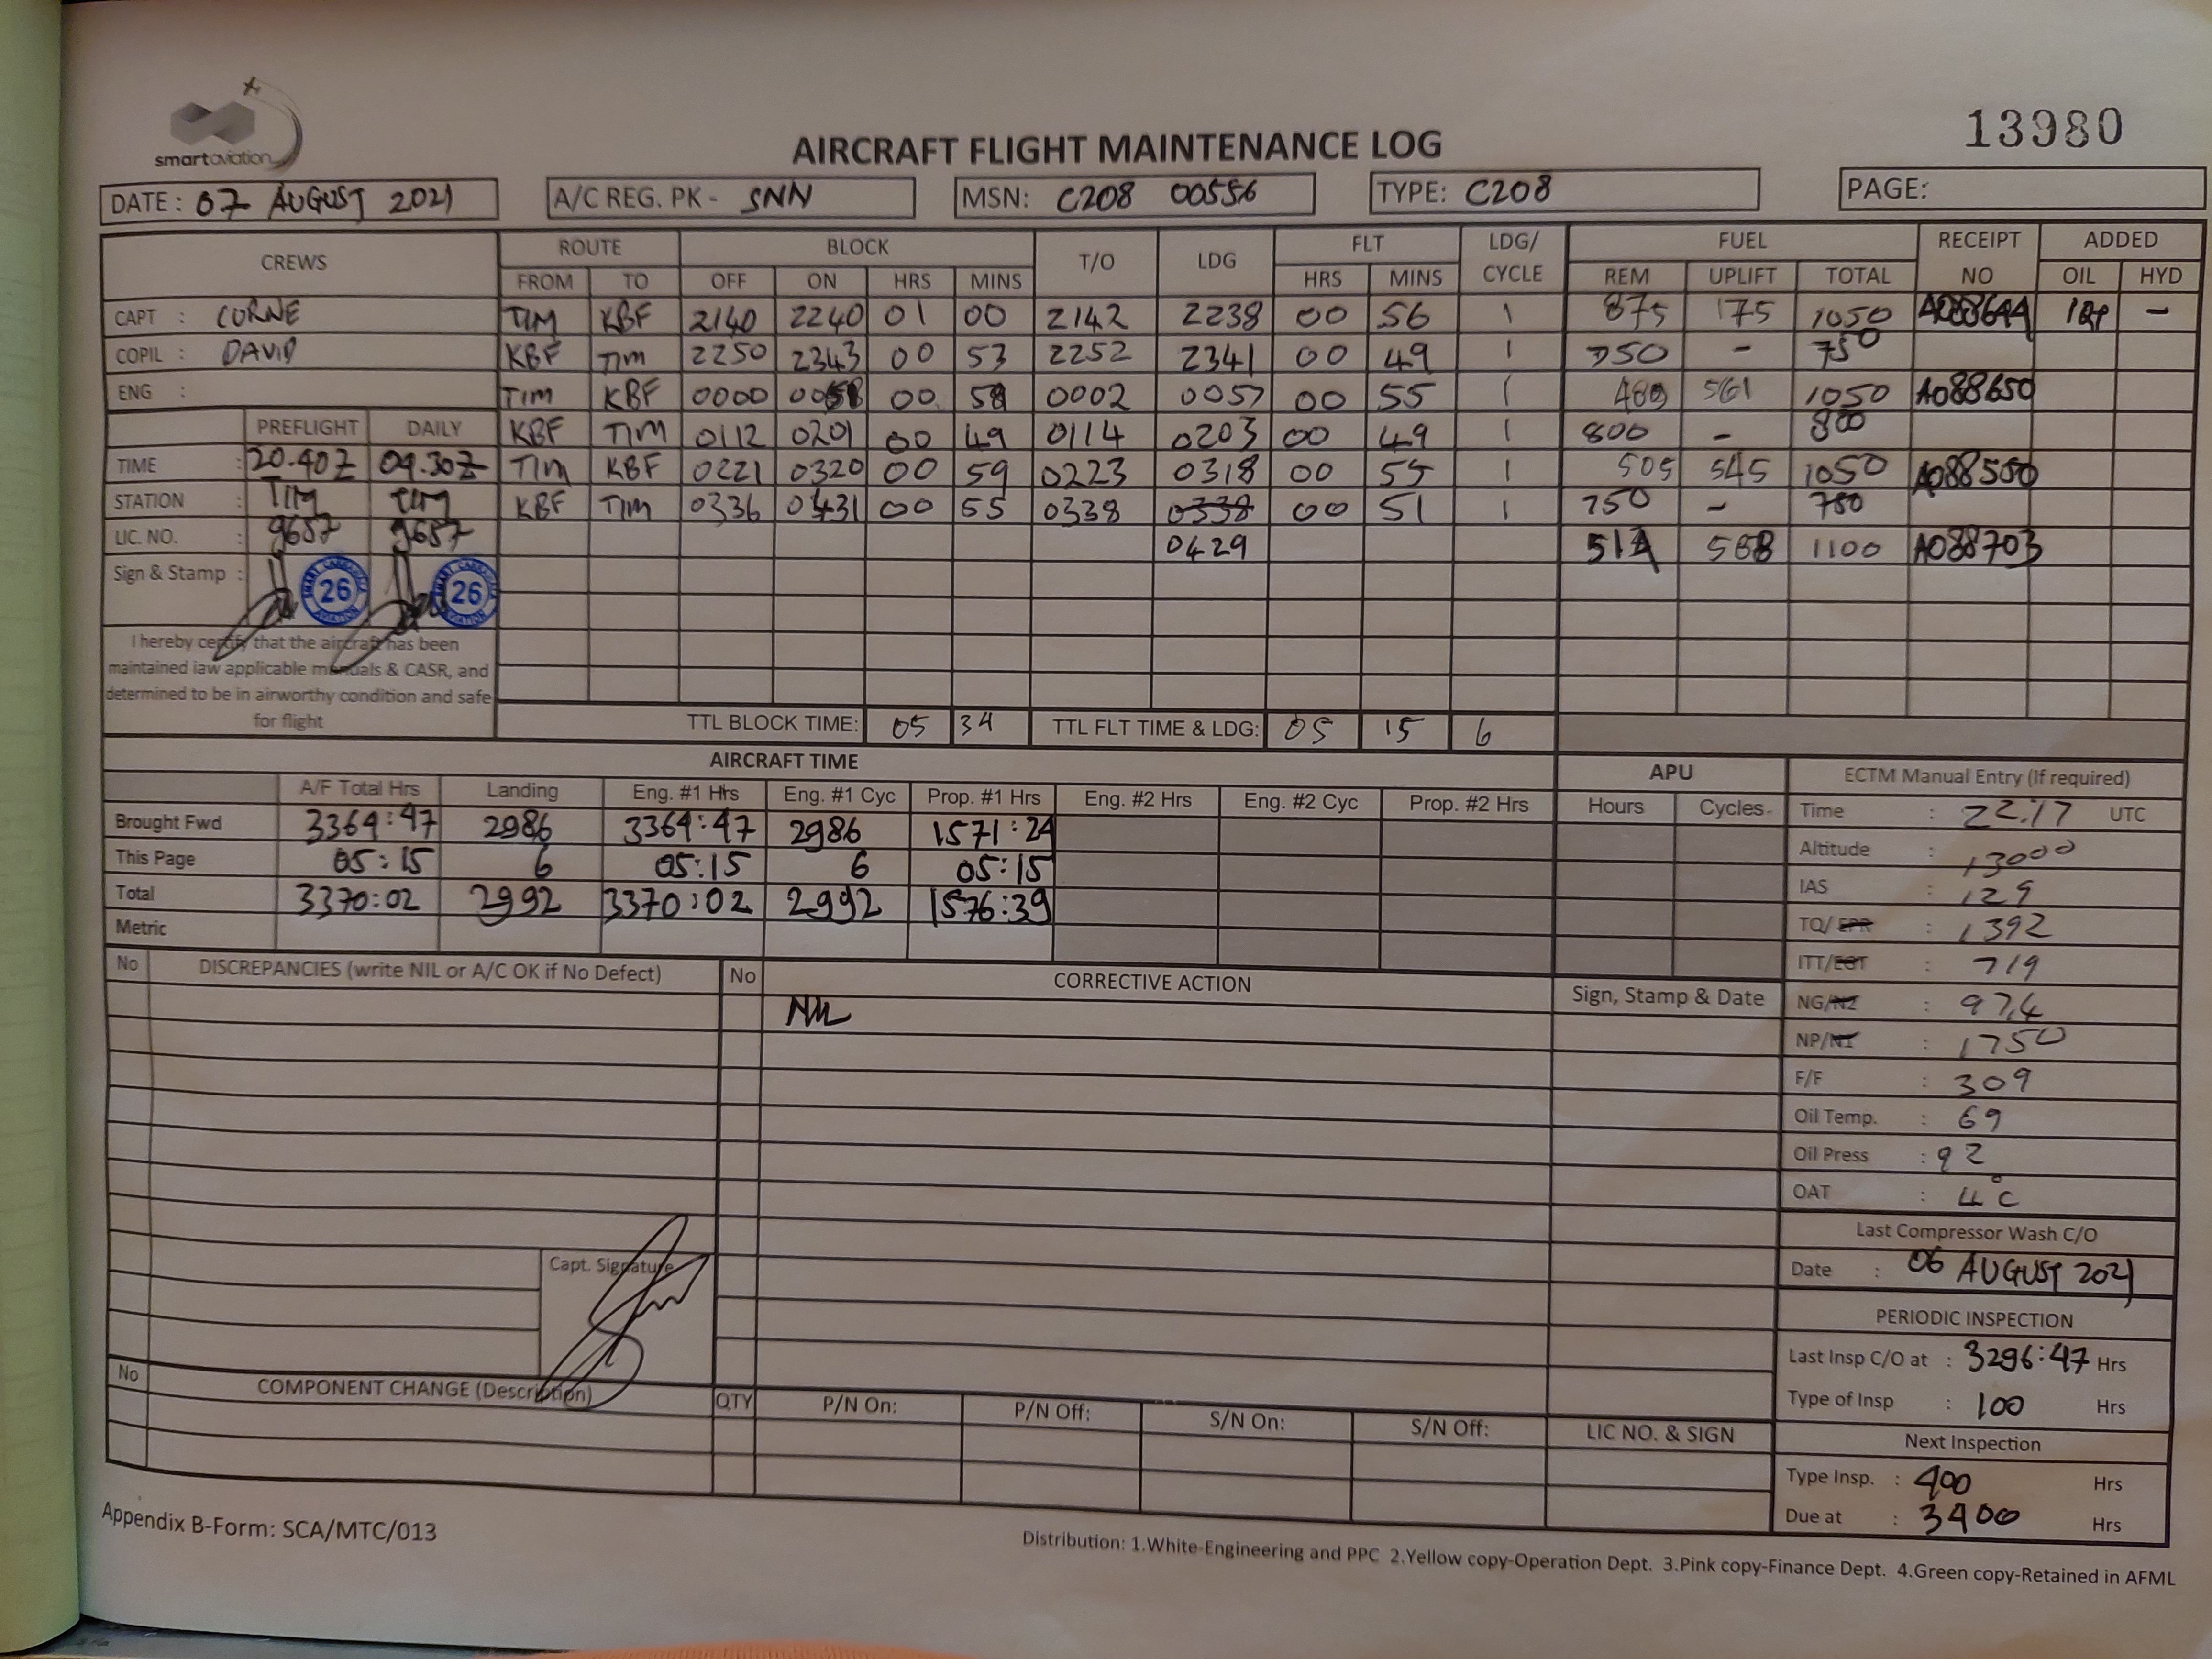 smartaviation
13980
AIRCRAFT FLIGHT MAINTENANCE LOG
DATE : 07 AUGUST 2021 A/C REG. PK - SNN MSN: C208 00556 TYPE: C208 PAGE:
CREWS ROUTE BLOCK T/O LDG FLT LDG/ CYCLE FUEL RECEIPT NO ADDED
FROM TO OFF ON HRS MINS HRS MINS REM UPLIFT TOTAL OIL HYD
CAPT : CORNE TIM KBF 2140 2240 01 00 2142 2238 00 56 1 875 175 1050 A088644 -
COPIL : DAVID KBF TIM 2250 2343 00 53 2252 2341 00 49 1 750 - 750
ENG : TIM KBF 0000 0058 00 58 0002 0057 00 55 1 489 561 1050 A088650
PREFLIGHT DAILY KBF TIM 0112 0201 00 49 0114 0203 00 49 1 800 - 800
TIME : 20.40Z 04.30Z TIM KBF 0221 0320 00 59 0223 0318 00 55 1 505 545 1050 A088500
STATION : TIM TIM KBF TIM 0336 0431 00 55 0338 0338 00 51 1 750 - 750
LIC. NO. : 9657 9657 0429 512 588 1100 A088703
Sign & Stamp : 26 26
I hereby certify that the aircraft has been
maintained iaw applicable manuals & CASR, and
determined to be in airworthy condition and safe
for flight
TTL BLOCK TIME: 05 34 TTL FLT TIME & LDG: 05 15 6
AIRCRAFT TIME APU
A/F Total Hrs Landing Eng. #1 Hrs Eng. #1 Cyc Prop. #1 Hrs Eng. #2 Hrs Eng. #2 Cyc Prop. #2 Hrs Hours Cycles
Brought Fwd 3364:47 2986 3364:47 2986 1571:24
This Page 05:15 6 05:15 6 05:15
Total 3370:02 2992 3370:02 2992 1576:39
Metric
ECTM Manual Entry (If required)
Time : 22.17 UTC
Altitude : 13000
IAS : 129
TQ/EPR : 1392
ITT/EGT : 719
NG/N2 : 97.4
NP/N1 : 1750
F/F : 309
Oil Temp. : 69
Oil Press : 92
OAT : 4°C
Last Compressor Wash C/O
Date : 06 AUGUST 2021
PERIODIC INSPECTION
Last Insp C/O at : 3296:47 Hrs
Type of Insp : 100 Hrs
Next Inspection
Type Insp. : 400 Hrs
Due at : 3400 Hrs
No DISCREPANCIES (write NIL or A/C OK if No Defect) No CORRECTIVE ACTION Sign, Stamp & Date
NIL
Capt. Signature
No COMPONENT CHANGE (Description) QTY P/N On: P/N Off: S/N On: S/N Off: LIC NO. & SIGN
Appendix B-Form: SCA/MTC/013
Distribution: 1.White-Engineering and PPC 2.Yellow copy-Operation Dept. 3.Pink copy-Finance Dept. 4.Green copy-Retained in AFML